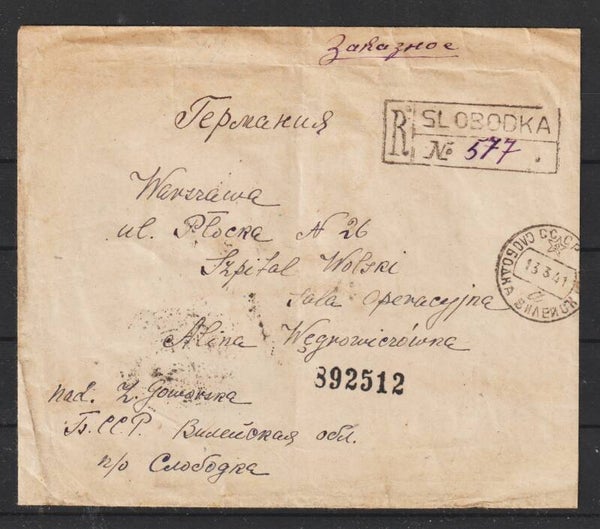 Заказное
Германия
R SLOBODKA
№ 577.
Warszawa
ul. Płocka N 26
Szpital Wolski
Sala Operacyjna
СССР
СЛОБОДКА ВИЛЕЙСК
13 3 41
Alina Węgrowiczówna
892512
nad. Z. Gowarska
Б.ССР. Вилейская обл.
п/о Слободка